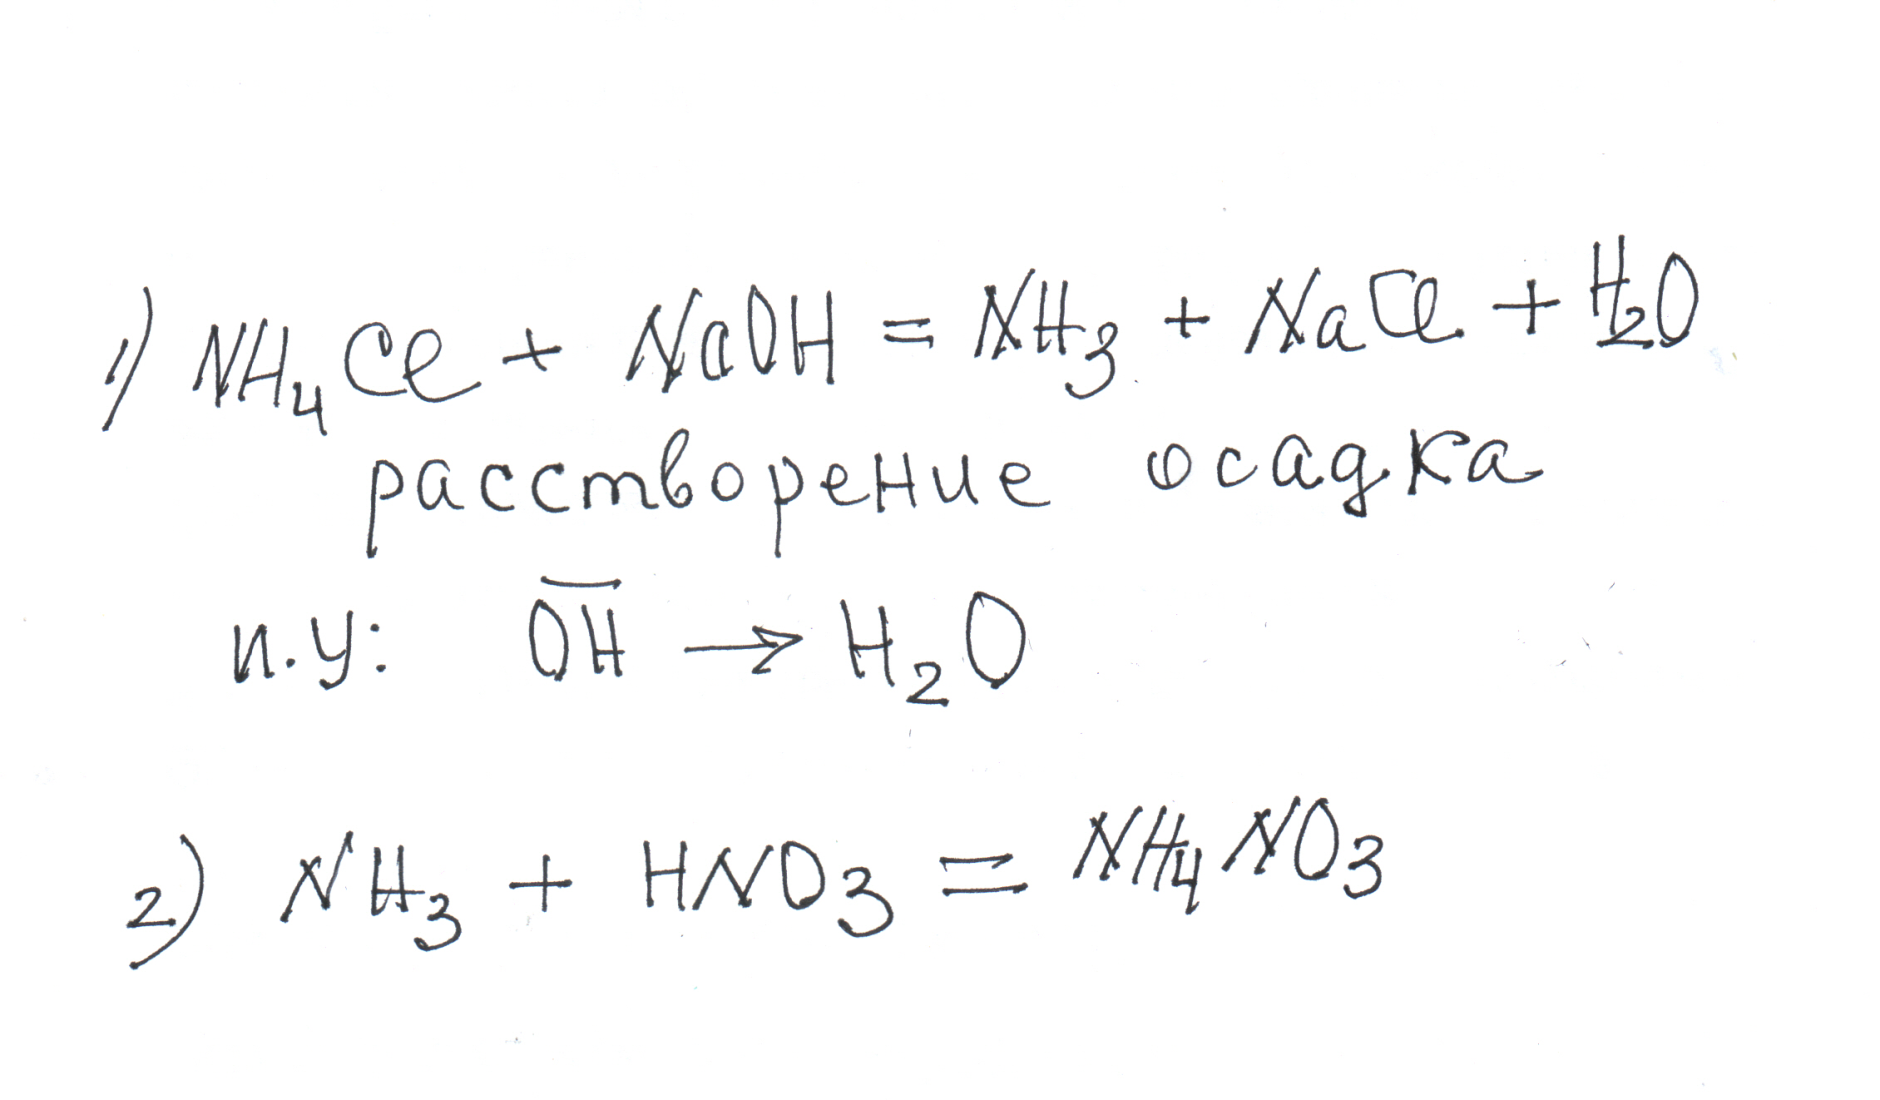 1) NH₄Cl + NaOH = NH₃ + NaCl + H₂O
расстворение осадка
и.у: O̅H̅ → H₂O
2) NH₃ + HNO₃ = NH₄NO₃